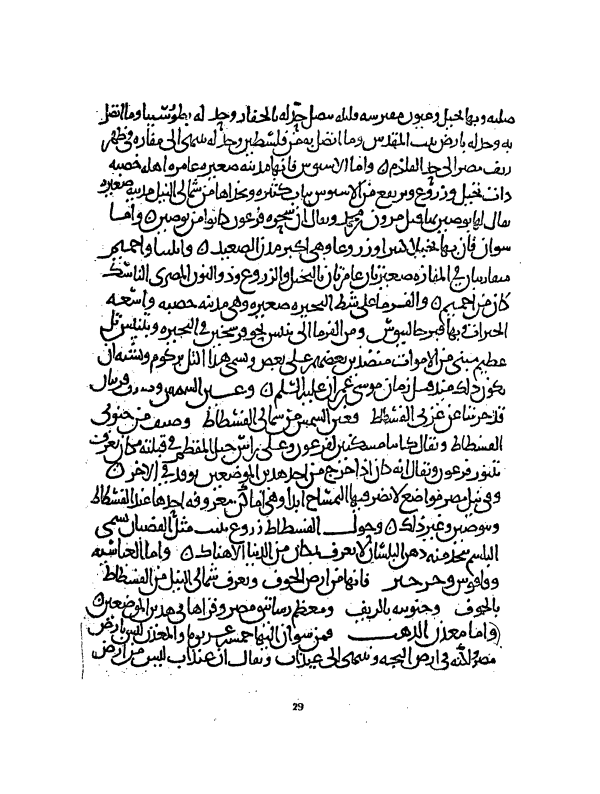 صلبه وبها نخيل وعيون مفترشه قليله يتصل حدّ له بالجفار وحد له بطور سينا وما اتصل
به وحد له بارض بيت المقدس وما اتصل به من فلسطين وحد له ينتهى الى مفازه فى ظهر
ريف مصر الى حد القلزم ه واما الاشمونين فانها مدينه صغيره عامره اهله خصبه
ذات نخيل وزروع ويرتفع من الاشمونين ثياب كثيره وبحذاها من شمالى النيل مدينه صغيره
يقال لها بوصير بها قتل مرون بن محمد ويقال ان سحره فرعون كانوا من بوصير ه واما
اسوان فان بها نخيلا كثيرا وزروعا وهى اكبر مدن الصعيد ه واسنا واخميم
متقاربتان فى العماره صغيرتان عامرتان بالنخيل والزروع وذو النون المصرى الناسك
كان من اخميم ه والفرما على شط البحيره صغيره وهى مدينه خصبه واسعه
الخيرات وبها قبر جالينوس ومن الفرما الى تنيس نحو فرسخين فى البحيره وبتنيس تل
عظيم مبنى من الاموات منضدين بعضهم على بعض ويسمى هذا التل بوكوم ويشبه ان
يكون ذلك من قبل زمان موسى بن عمران عليه السلم ه وعين الشمس ومنف قريتان
قد خربتا عن غربى الفسطاط وعين الشمس من شمالى الفسطاط ومنف من جنوبى
الفسطاط ويقال كانتا مسكنين لفرعون وعلى راس جبل المقطم فى قبلته مكان يعرف
بتنور فرعون ويقال انه كان اذا خرج من احد هذين الموضعين يوقد فى الاخر ه
وفى نيل مصر مواضع لا يضر فيها التمساح ابدا وهى اماكن معروفه احدها عند الفسطاط
وبوصير وغير ذلك ه وحوالى الفسطاط زروع ينبت مثل القضبان يسمى
البلسم يتخذ منه دهن البلسان لا يعرف بمكان من الدنيا الا هناك ه واما العباسه
وفاقوس وجرجير فانها من ارض الحوف ويعرف شمالى النيل من الفسطاط
بالحوف وجنوبيه بالريف ومعظم رساتيق مصر وقراها فى هذين الموضعين ه
واما معدن الذهب فمن اسوان اليها خمسة عشر يوما والمعدن ليس بارض
مصر ولكنه فى ارض البجه وينتهى الى عيذاب ويقال ان عيذاب ليس من ارض
29